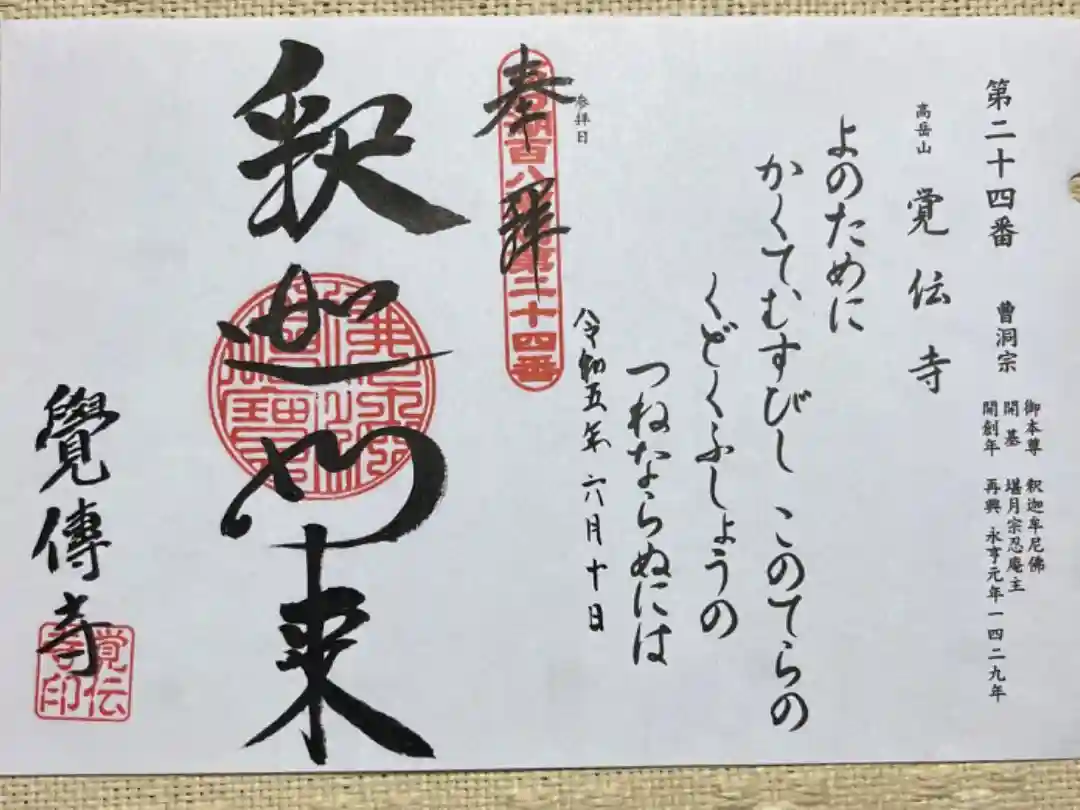 第二十四番 曹洞宗
御本尊 釈迦牟尼佛
開基 堪月宗忍庵主
開創年 再興 永亨元年一四二九年
高岳山 覚伝寺
よのために
かくてむすびし このてらの
くどくふしょうの
つねならぬには
参拝日
令和五年 六月十日
奉拝
百八
第二十四番
釈迦如来
覺傳寺
覚伝
寺印